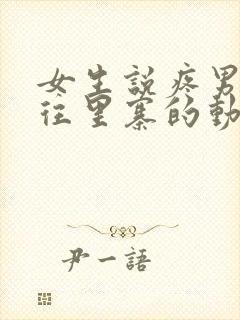 女生說疼男
往里寨的動
尹一語